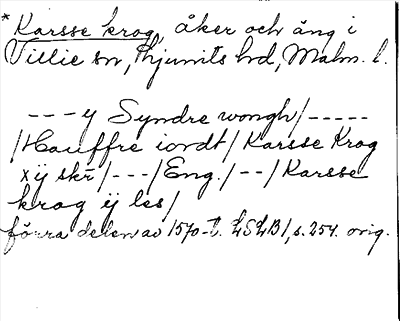 * Karsse krog, åker och äng i
Villie sn, Ljunits hd, Malm. l.
---y Syndre wongh/-----
/Hauffre iordt/Karsse Krog
xÿ skr̄/---/Eng./--/Karsse
krog ÿ les/
förra delen av 1570-t. LSLB1, s. 254. orig.